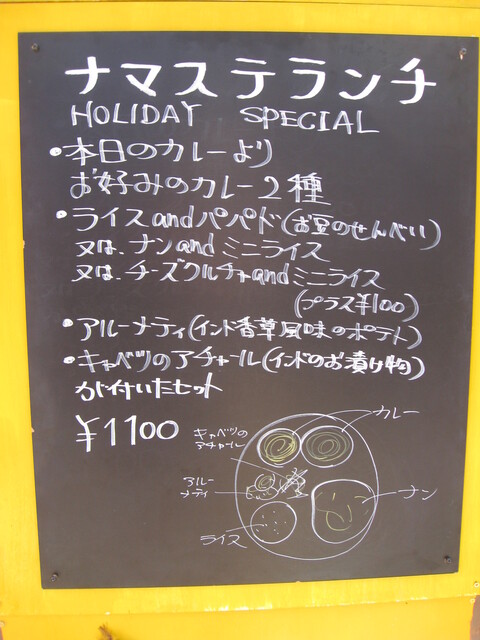 ナマステランチ
HOLIDAY SPECIAL
・本日のカレーより
お好みのカレー2種
・ライスandパパド(お豆のせんべい)
又は、ナンandミニライス
又は、チーズクルチャandミニライス
(プラス¥100)
・アルーメティ(インド香草風味のポテト)
・キャベツのアチャール(インドのお漬け物)
が付いたセット
¥1100
カレー
キャベツの
アチャール
アルー
メティ
ナン
ライス